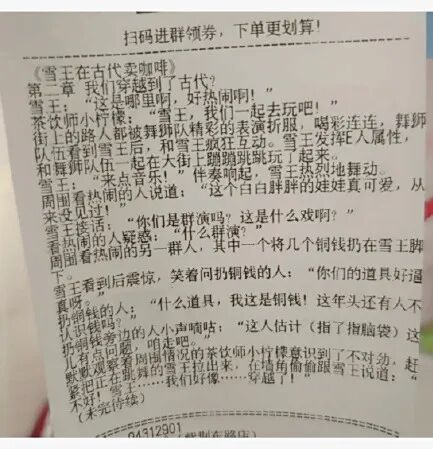 扫码进群领券，下单更划算！
《雪王在古代卖咖啡》
第二章 我们穿越到了古代？
雪王：“这是哪里啊，好热闹啊！”
茶饮师小柠檬：“雪王，我们一起去玩吧！”
街上的路人都被舞狮队精彩的表演折服，喝彩连连，舞狮
队伍看到雪王后，和雪王疯狂互动。雪王发挥E人属性，
和舞狮队伍一起在大街上蹦蹦跳跳玩了起来。
雪王：“来点音乐！”伴奏响起，雪王热烈地舞动。
周围看热闹的人说道：“这个白白胖胖的娃娃真可爱，从
来没见过！”
雪王接话：“你们是群演吗？这是什么戏啊？”
看热闹的人疑惑：“什么群演？”
周围看热闹的另一群人，其中一个将几个铜钱扔在雪王脚
下。
雪王看到后震惊，笑着问扔铜钱的人：“你们的道具好逼
真呀。”
扔铜钱的人：“什么道具，我这是铜钱！这年头还有人不
认识钱吗？”
扔铜钱旁边的人小声嘀咕：“这人估计（指了指脑袋）这
儿有点问题，咱走吧。”
默默观察着周围情况的茶饮师小柠檬意识到了不对劲，赶
紧把正在跳舞的雪王拉出来，在墙角偷偷跟雪王说道：“
不好！雪王……我们好像……穿越了！”
（未完待续）
04312901